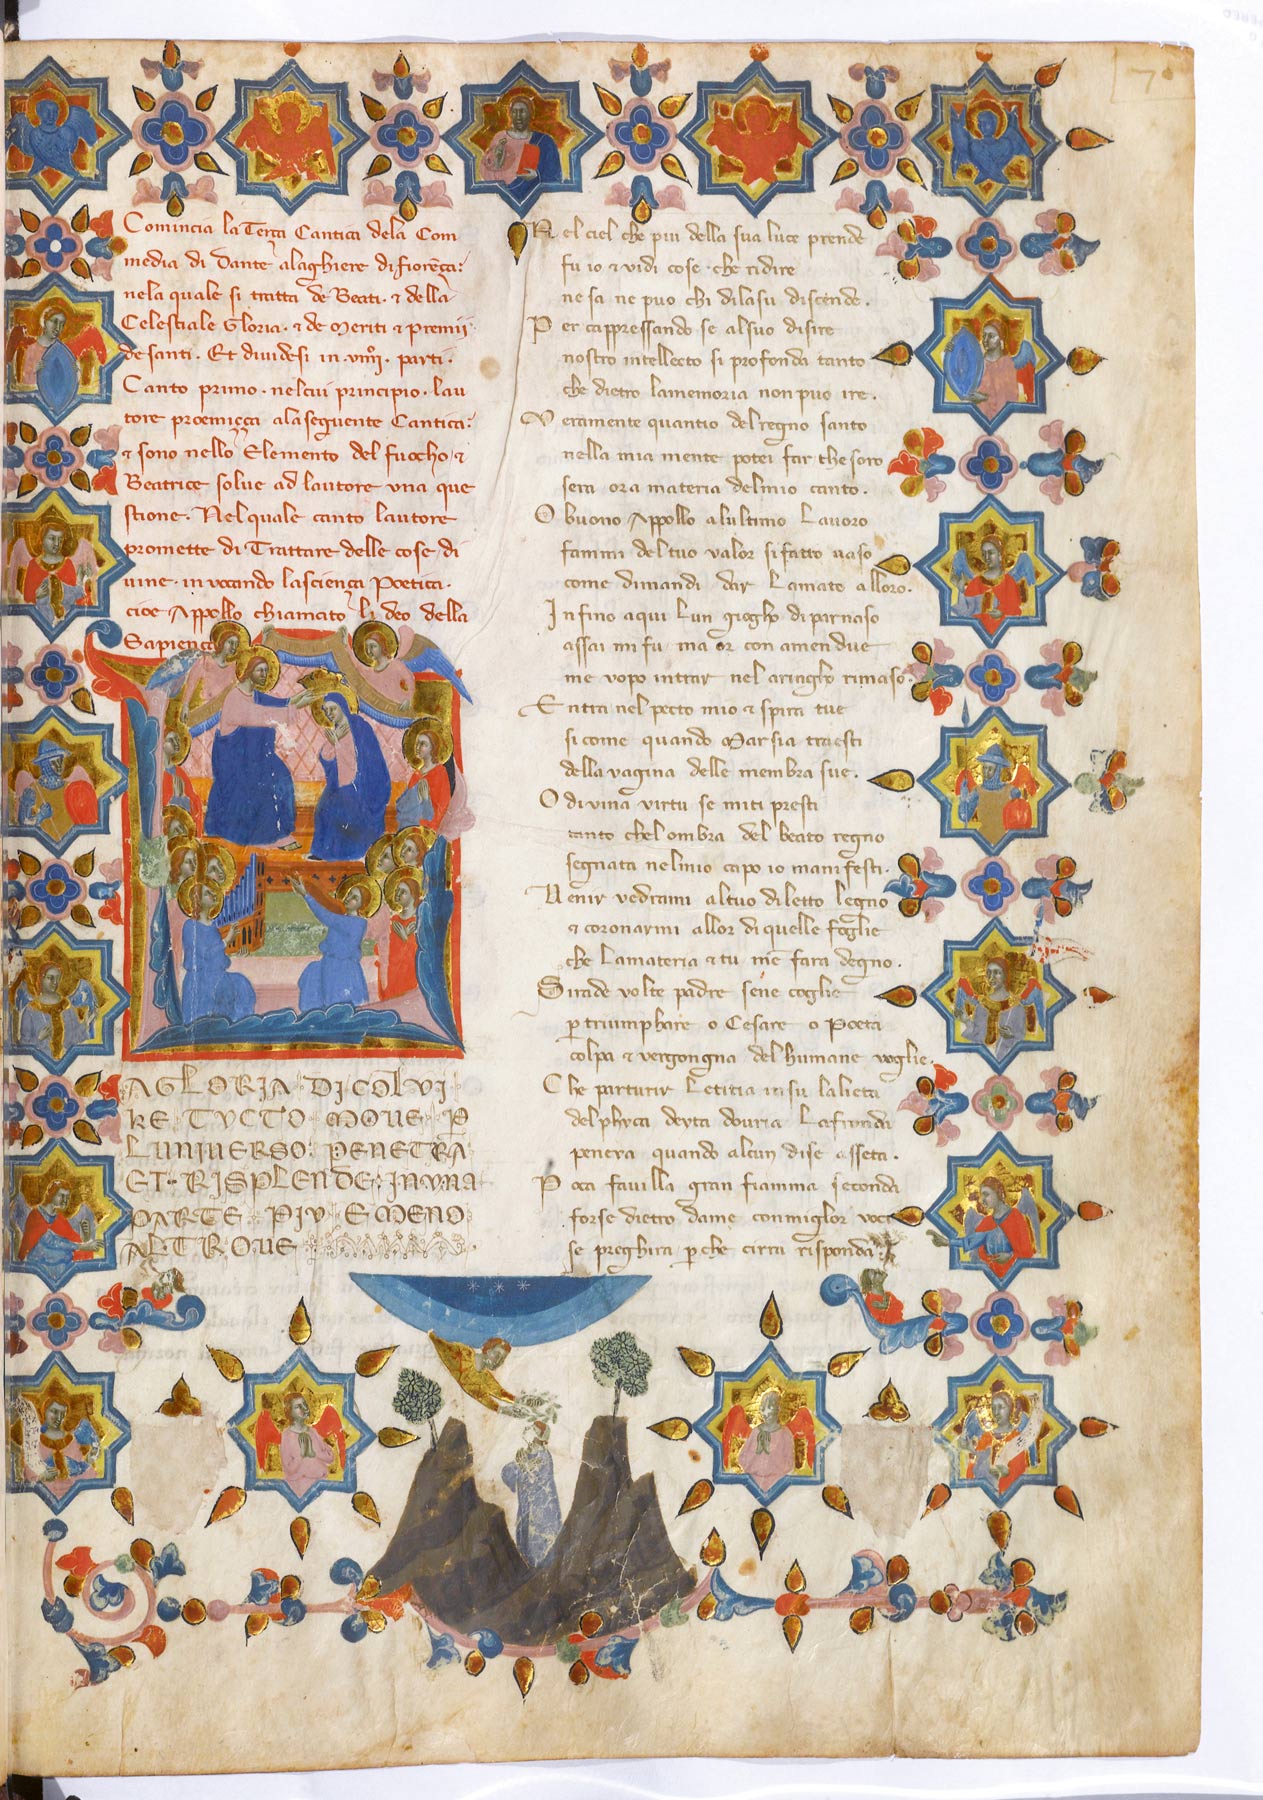 7
Comincia la Terça Cantica dela Com
media di Dante alaghiere di fiorēça:
nela quale si tratta de Beati · & della
Celestiale Gloria · & de meriti & premii
de santi · Et dividesi in · viiij · parti ·
Canto primo · nelcui principio · lau
tore proemiçça ala sequente Cantica:
& sono nello Elemento del fuocho · &
Beatrice solve ad lautore una que
stione · Nel quale canto lautore
promette di Trattare delle cose di
uine · invocando la sciença Poetica ·
cioe Appollo chiamato li deo della
Sapiença
AGLORIA DICOLVI
KE TVCTO MOVE P
LUNIVERSO: PENETRA
ET RISPLENDE INVNA
PARTE PIV EMENO
ALTROVE
Nel ciel che piu della sua luce prende
fu io & vidi cose · che ridire
ne sa ne puo chi dilasu discende ·
Per cappressando se alsuo disire
nostro intellecto si profonda tanto
che dietro lamemoria non puo ire ·
Veramente quantio del regno santo
nella mia mente potei far thesoro
sera ora materia delmio canto ·
O buono Appollo alultimo Lavoro
fammi del tuo valor sifatto vaso
come dimandi dar Lamato alloro ·
Infino aqui Lun giogho di parnaso
assai mi fu ma or con amendue
me vopo intrar nel aringho rimaso ·
Entra nel pecto mio & spira tue
si come quando Marsia traesti
della vagina delle membra sue ·
O divina virtu se miti presti
tanto chel ombra del beato regno
segnata nelmio capo io manifesti ·
Venir vedrami altuo diletto legno
& coronarmi allor di quelle foglie
che Lamateria & tu mē fara degno ·
Si rade volte padre sene coglie
p triumphare o Cesare o Poeta
colpa & vergongna del humane voglie ·
Che parturir Letitia insu lalieta
delphyca deyta dovria Lafronda
peneya quando alcun dise asseta ·
Poca favilla gran fiamma seconda
forse dietro dame conmiglor voci
se preghira p che cirra risponda ·